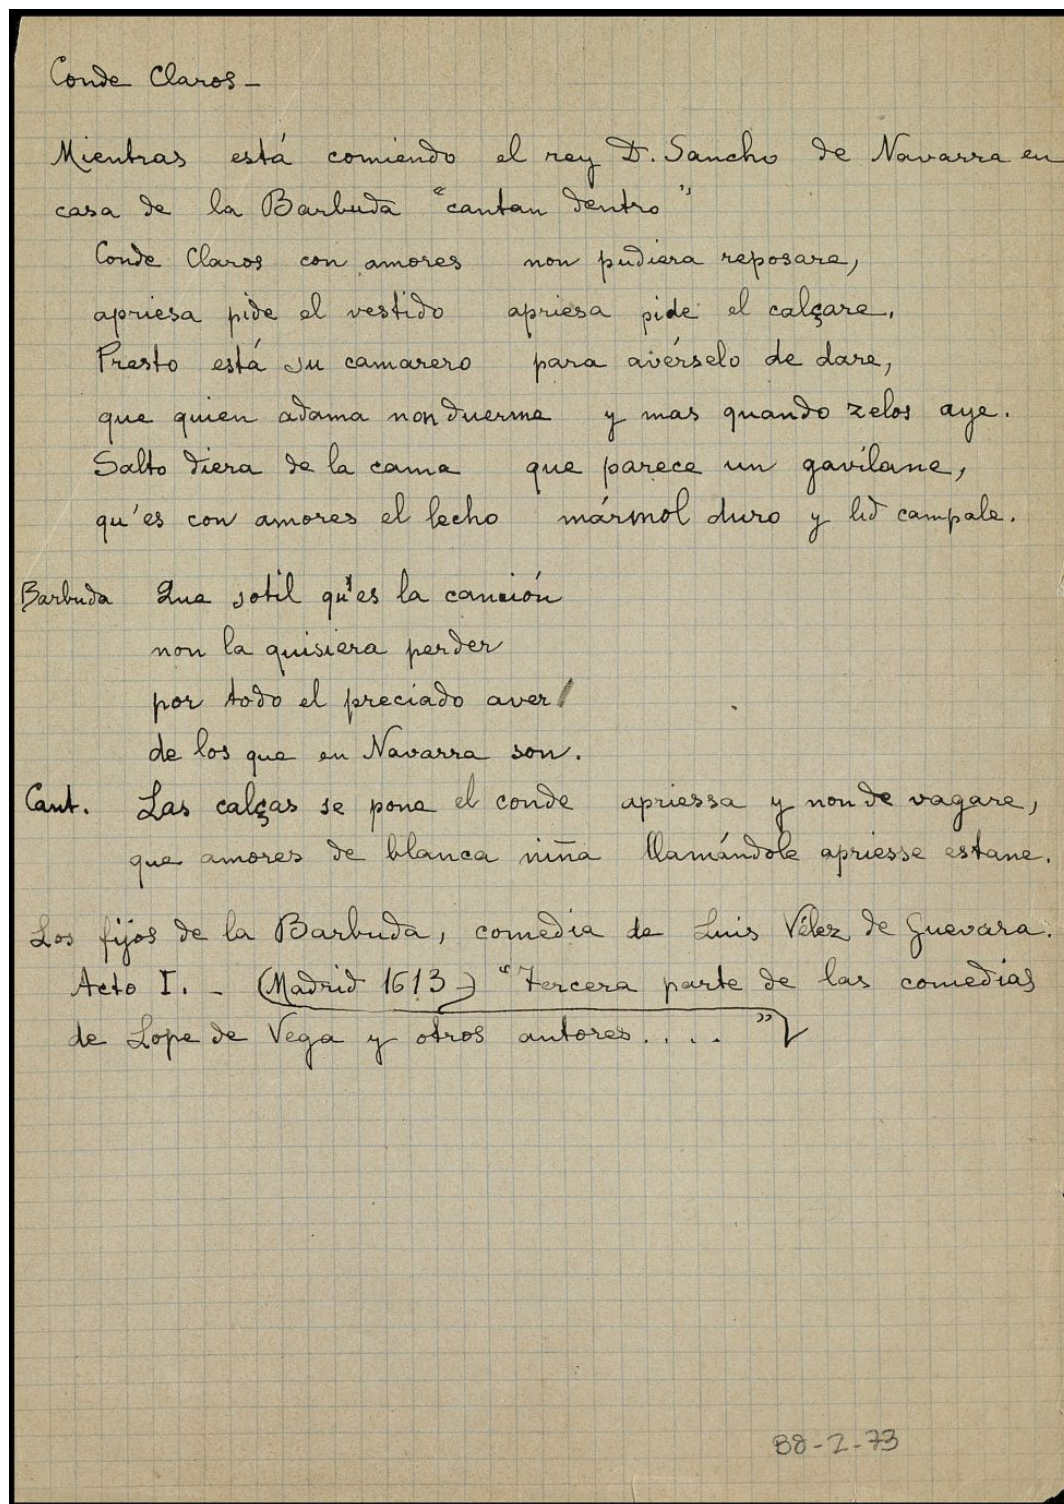 Conde Claros -
Mientras está comiendo el rey D. Sancho de Navarra en
casa de la Barbuda "cantan dentro"
Conde Claros con amores non pudiera reposare,
apriesa pide el vestido apriesa pide el calçare.
Presto está su camarero para avérselo de dare,
que quien adama non duerme y mas quando zelos aye.
Salto diera de la cama que parece un gavilane,
qu'es con amores el lecho mármol duro y lid campale.
Barbuda Que sotil qu'es la canción
non la quisiera perder
por todo el preciado aver
de los que en Navarra son.
Cant. Las calças se pone el conde apriessa y non de vagare,
que amores de blanca niña llamándole apriesse estane.
Los fijos de la Barbuda, comedia de Luis Vélez de Guevara.
Acto I. - (Madrid 1613-) "Tercera parte de las comedias
de Lope de Vega y otros autores . . . . "
B8-2-73